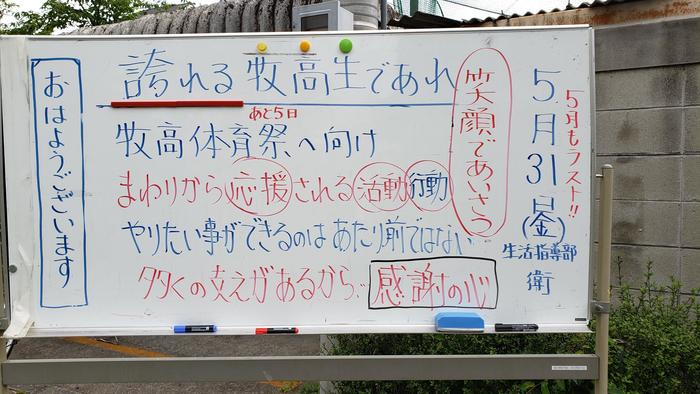 5月もラスト!!
5月31日(金)
生活指導部
衛
笑顔であいさつ
誇れる牧高生であれ
あと5日
牧高体育祭へ向け
まわりから応援される活動行動
やりたい事ができるのはあたり前ではない
多くの支えがあるから… 感謝の心
おはようございます